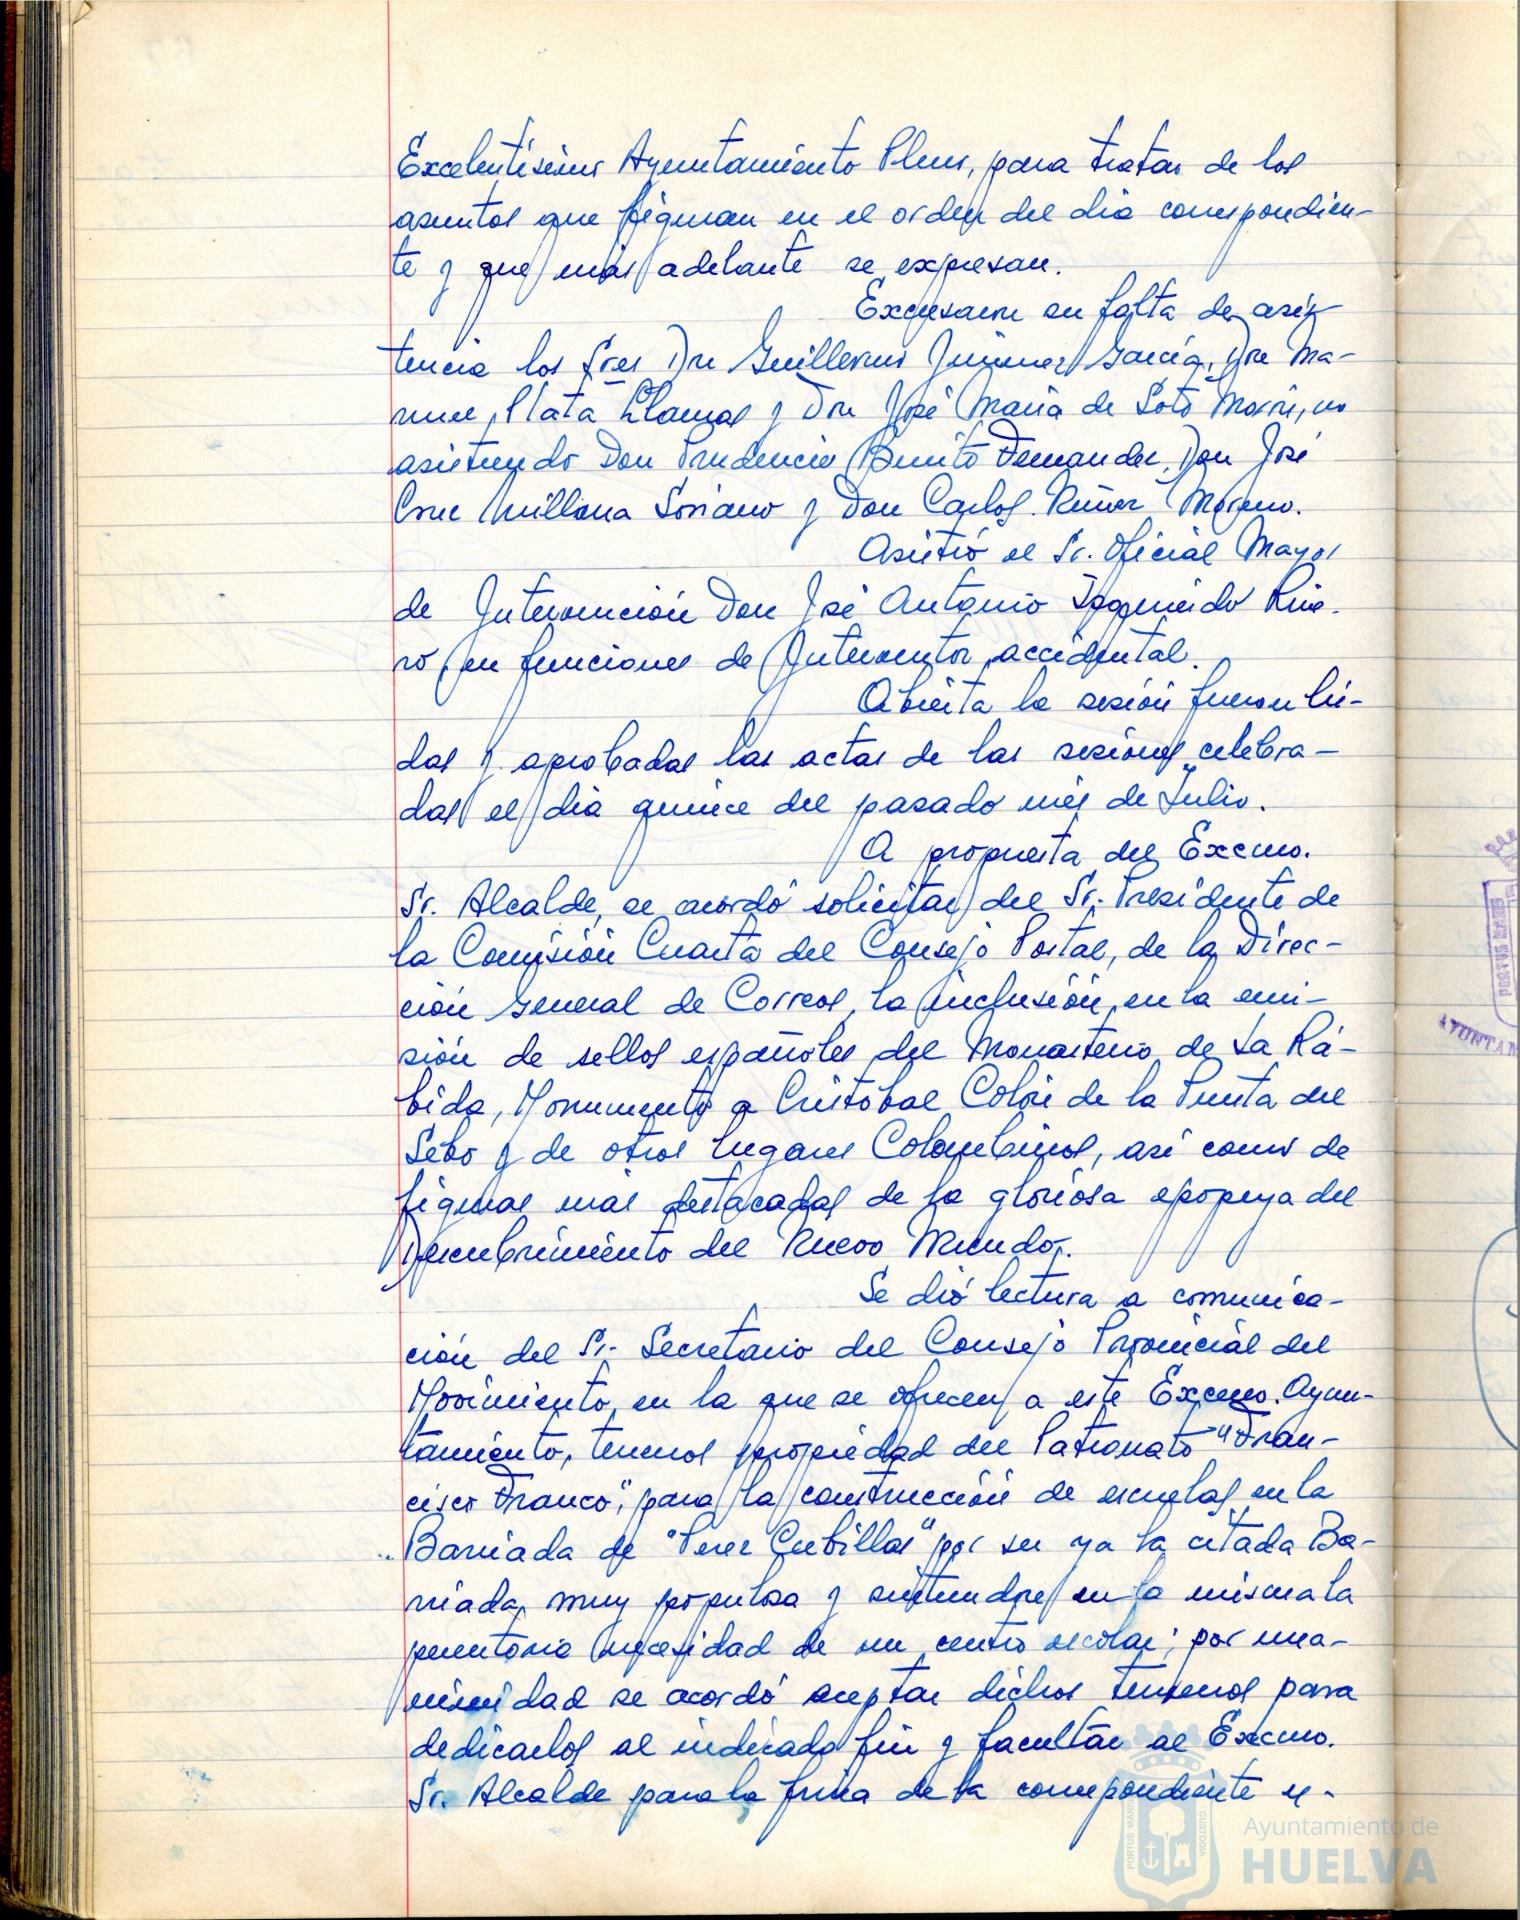 Excelentísimo Ayuntamiento Pleno, para tratar de los
asuntos que figuran en el orden del día correspondien-
te y que más adelante se expresan.
Excusaron su falta de asis-
tencia los Sres Don Guillermo Jimenez García, Don Ma-
nuel Plata Llamas y Don José María de Soto Morón, no
asistiendo Don Prudencio Benito Fernandez, Don José
Cruz Millana Soriano y Don Carlos Núñez Moreno.
Asistió el Sr. Oficial Mayor
de Intervención Don José Antonio Izquierdo Rive-
ro, en funciones de Interventor accidental.
Abierta la sesión fueron leí-
das y aprobadas las actas de las sesiones celebra-
das el día quince del pasado mes de Julio.
A propuesta del Excmo.
Sr. Alcalde, se acordó solicitar del Sr. Presidente de
la Comisión Cuarta del Consejo Postal, de la Direc-
ción General de Correos, la inclusión, en la emi-
sión de sellos españoles del Monasterio de La Rá-
bida, Monumento a Cristóbal Colón de la Punta del
Sebo y de otros lugares Colombinos, así como de
figuras más destacadas de la gloriosa epopeya del
Descubrimiento del Nuevo Mundo.
Se dió lectura a comunica-
ción del Sr. Secretario del Consejo Provincial del
Movimiento, en la que se ofrecen a este Excmo. Ayun-
tamiento, terrenos propiedad del Patronato "Fran-
cisco Franco", para la construcción de escuelas en la
Barriada de "Perez Cubillas" por ser ya la citada Ba-
rriada, muy populosa y sintiendose en la misma la
perentoria necesidad de un centro escolar; por una-
nimidad se acordó aceptar dichos terrenos para
dedicarlos al indicado fin y facultar al Excmo.
Sr. Alcalde para la firma de la correspondiente es-
PORTUS MARIS
CUSTODIA
Ayuntamiento de
HUELVA
PORTUS MARIS
AYUNTAM